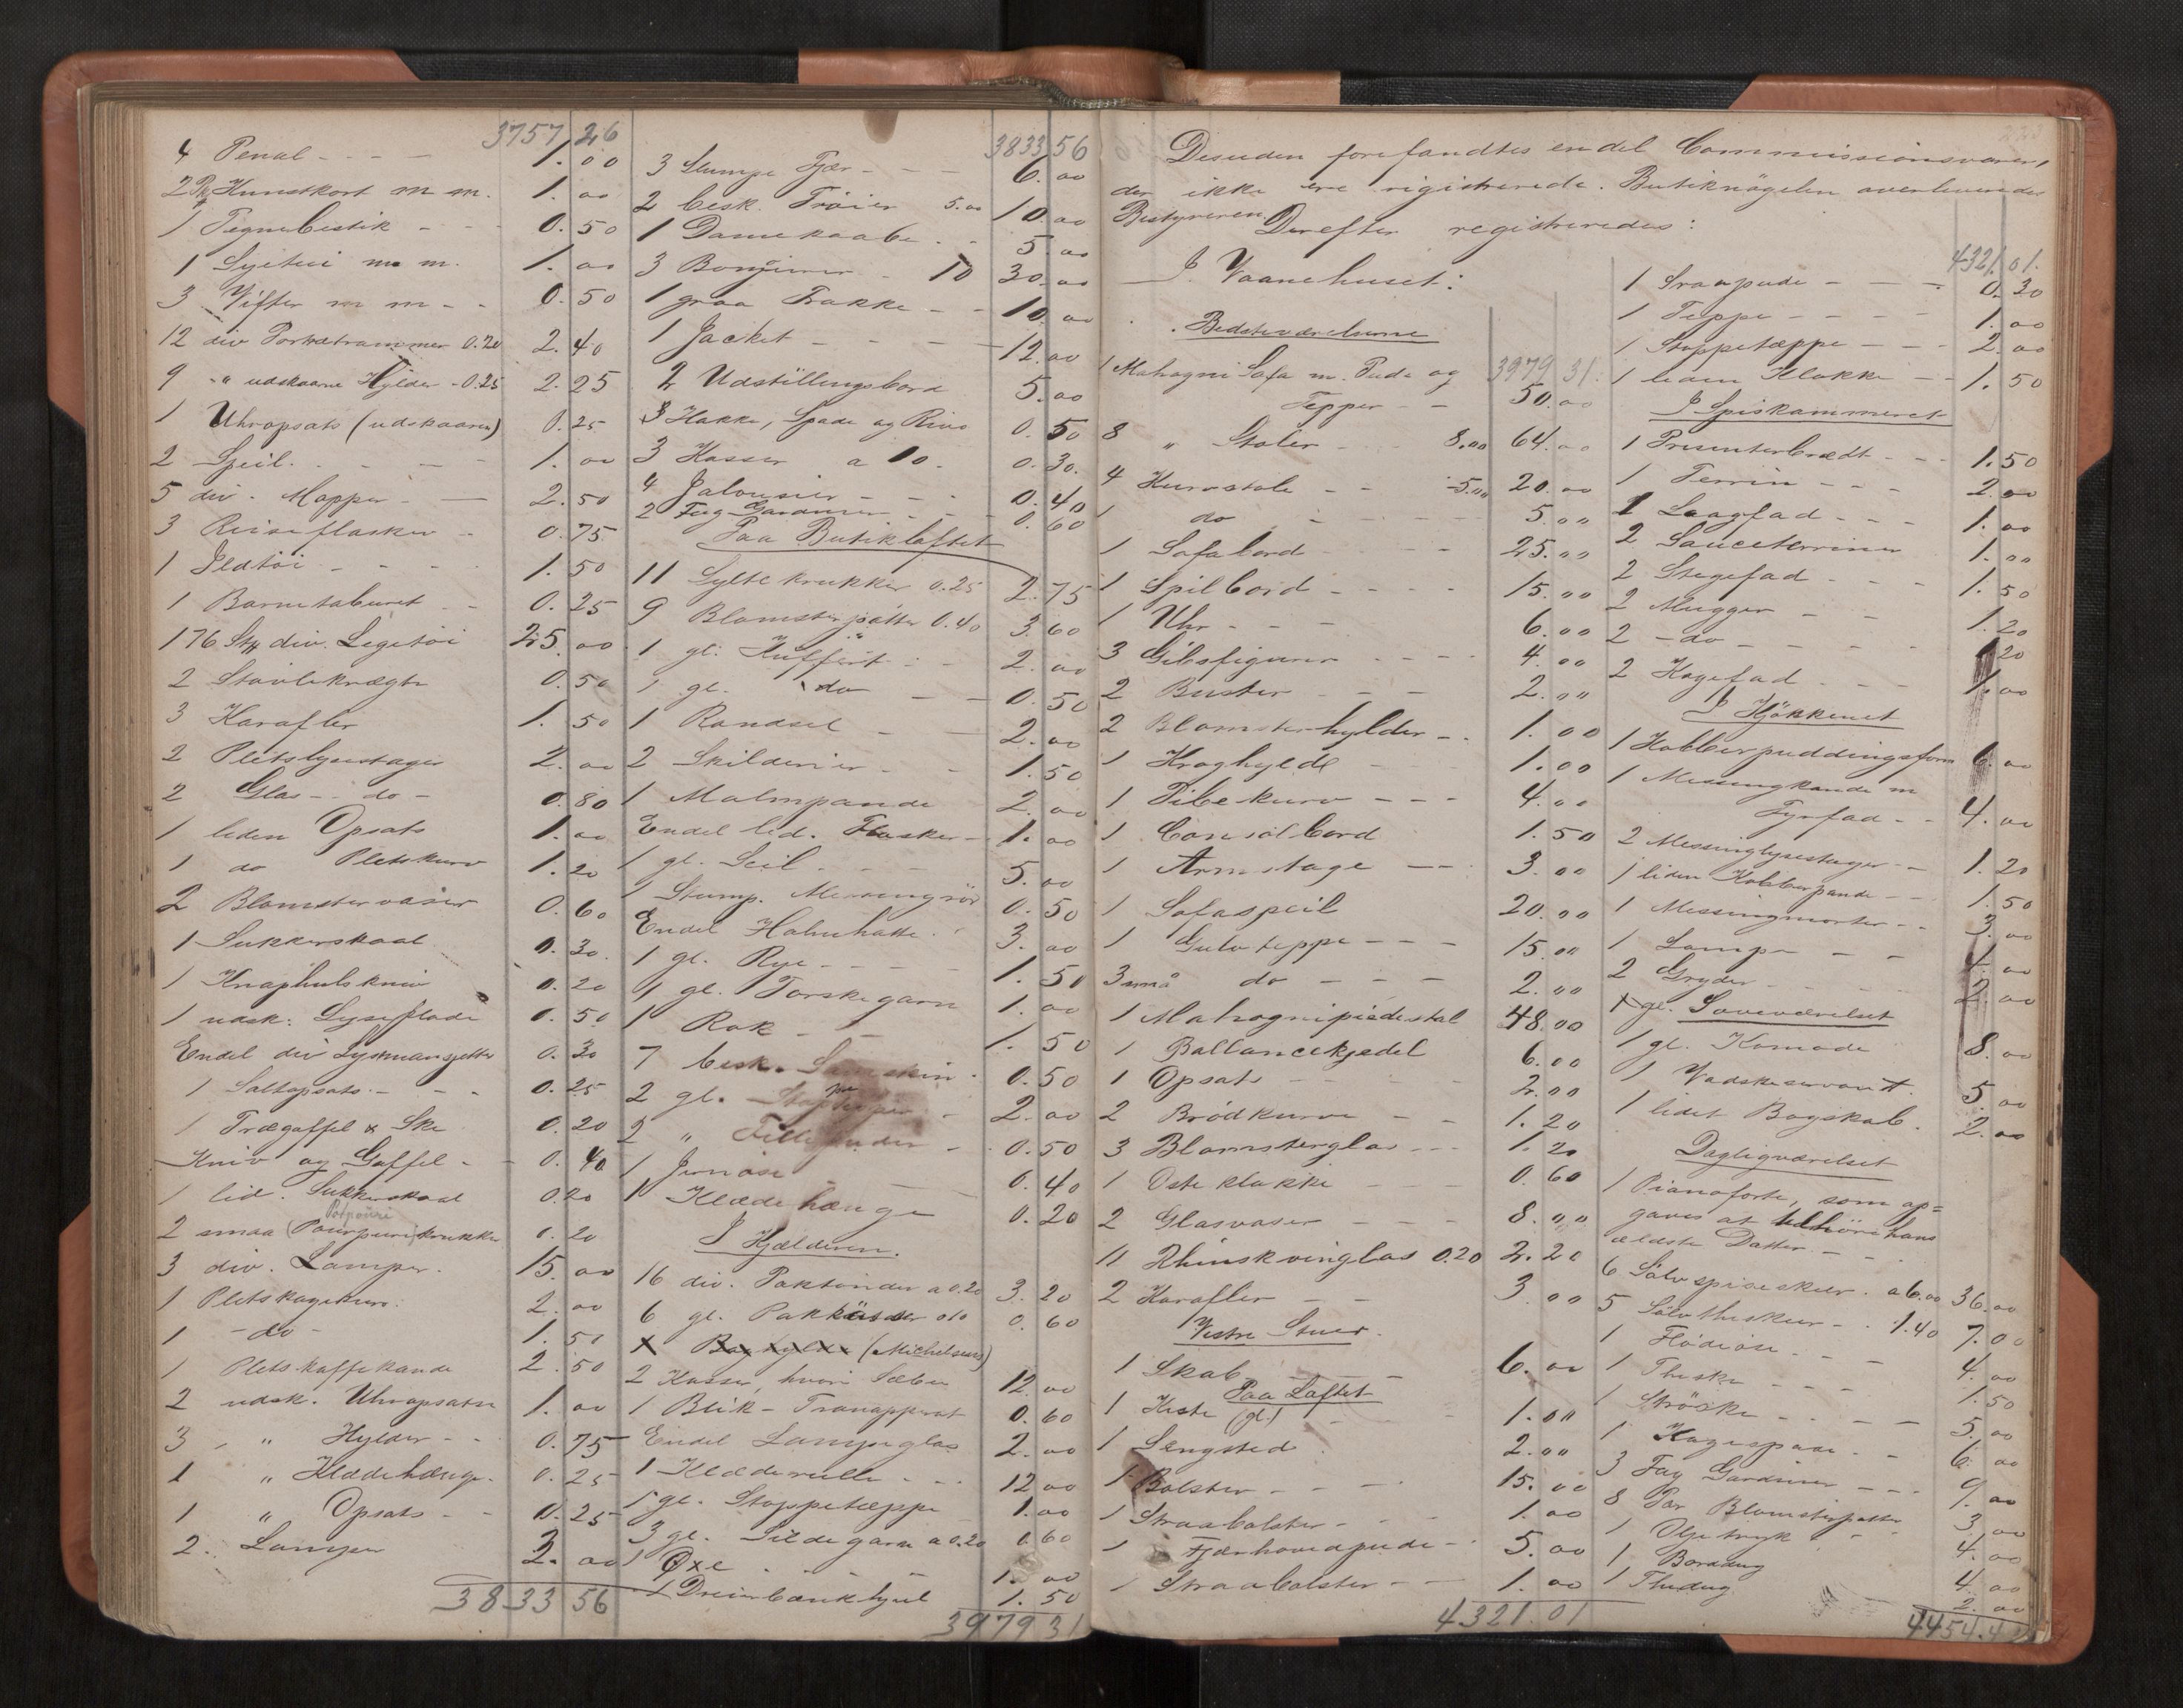 3757 26
4 Penal - - - 1.00
2 Pk Kunstkort m m. 1.00
1 Tegnebestik - - 0.50
1 Syetui m m. 1.00
3 Vifter m m - - 0.50
12 div Portrætrammer 0.20 2.40
9 " udskaarne Hylder - 0.25 2.25
1 Uhropsats (udskaaren) 0.25
2 Speil. - - - 1.00
5 div. Mapper - — 2.50
3 Reiseflasker - 0.75
1 Ildtøi - - - - 1.50
1 Barnetaburet - - 0.25
176 Stk div. Legetøi 25.00
2 Støvleknægte 0.50
3 Karafler 1.50
2 Pletslysestager 2.00
2 Glas - do - 0.80
1 liden Opsats 1.00
1 do Pletskurv 1.20
2 Blomstervaser 0.60
1 Sukkerskaal 0.30
1 Knaphulskniv 0.20
1 udsk. Lyseflade 0.50
Endel div Lysmansjetter 0.30
1 Saltopsats - - - 0.25
1 Trægaffel & Ske 0.20
Kniv og Gaffel - - 0.40
1 lid. Sukkerskaal 0.20
Potpouri
2 smaa (Pourpuri) krukker 0.20
3 div. Lamper. 15.00
1 Pletskagekurv. 2.00
1 - do - 1.50
1 Pletskaffekande 2.50
2 udsk. Uhropsatse 1.00
3 " Hylder - - 0.75
1 " Klædehænge - 0.25
1 " Opsats - - 0.25
2. Lamper 2.00
3833 56
3833 56
3 Stumpe Tjær - - - 6.00
2 besk. Trøier 5.00 10.00
1 Damekaabe - - 5.00
3 Bonjourer - 10 30.00
1 graa Frakke - - 10.00
1 Jacket - - - - 12.00
2 Udstillingsbord 5.00
3 Hakke, Spade og Rive 0.50
3 Kasser a 10. 0.30.
4 Jalousier - - - 0.40
2 Fag Gardiner - - - 0.60
Paa Butikloftet
11 Syltekrukker 0.25 2.75
9 Blomsterpotter 0.40 3.60
1 gl. Kuffert - - 2.00
1 gl. do - - 0.50
1 Randsel - - 2.00
2 Skilderier - - 1.50
1 Malmpande 2.00
Endel led. Flasker - 1.00
1 gl. Seil - - - 5.00
1 Stump. Messingrør 0.50
Endel Halmhatte. 3.00
1 gl. Rye - - - 1.50
1 gl. Torskegarn 1.00
1 Rok - - 1.50
7 besk. Saueskin - 0.50
2 gl. - 2.00
2 " - 0.50
1 Jernøse - - 0.40
1 Klædehænge 0.20
I Kjælderen.
16 div. Paktønder a 0.20 3.20
6 gl. Pakkasser 0.10 0.60
x Baghylde (Michelsens)
2 Kasser, hvori Sæber 12.00
1 Blik - Tranapparat 0.60
Endel Lampeglas 2.00
1 Klæderulle - - - 12.00
1 gl. Stoppetæppe 1.00
3 gl. Sildegarn a 0.20 0.60
1 Øxe - - - - 1.00
1 Dreiebænkhjul 1.50
3979 31
Desuden forefandtes endel Commissionsvarer,
der ikke ere registrerede. Butiknøgelen overleveredes
Bestyreren. Derefter registreredes:
I Vaanehuset:
Bedsteværelserne
3979 31.
1 Mahogni Sofa m. Pude og
Tepper - - 50.00
8 " Stoler - - 8.00 64.00
4 Kurvstole - - 5.00 20.00
1 do - - - - 5.00
1 Sofabord - - - 25.00
1 Spilbord - - - - 15.00
1 Uhr - - - 6.00
3 Gibsfigurer - - - - 4.00
2 Buster - - - 2.00
2 Blomsterhylder - . 1.00
1 Kroghylde - 1.00
1 Pibekurv - - - 4.00
1 Consolbord 1.50
1 Armstage — - 3.00
1 Sofaspeil 20.00
1 Gulvteppe - - - 15.00
3 små do - - - 2.00
1 Mahognipiedestal 48.00
1 Ballancekjedel 6.00
1 Opsats - - - - 2.00
2 Brødkurve - - 1.20
3 Blomsterglas - - - 1.20
1 Osteklokke - - - 0.60
2 Glasvaser - - - 8.00
11 Rhinskvinglas 0.20 2.20
2 Karafler - - 3.00
Vestre Stuer.
1 Skab - - - - 6.00
Paa Loftet
1 Kiste (gl.) - - - 1.00
1 Sengsted . 2.00
1 Bolster - - - - 15.00
1 Straabolster - - - 1.00
1 Fjærhovedpude - 5.00
1 Straabolster - - 1.00
4321.01
4321.01.
1 Straapude - - - - 0.30
1 Teppe - - - - 1.00
1 Stoppetæppe - - - 2.00
1 liden Klokke - - 1.50
I Spiskammeret
1 Presenterbrædt - - - 1.50
1 Terrin - - - 2.00
1 Laagfad - - - 1.00
2 Sauceterriner 1.00
2 Stegefad - - - 1.50
2 Mugger - - 1.20
2 - do - - - - - 1.20
2 Kagefad - - - 1.00
I Kjøkkenet
1 Kobberpuddingsform 6.00
1 Messingkande m
Fyrfad - - 4.00
2 Messinglysestager - - 1.20
1 liden Kobberpande - - 1.50
1 Messingmorter - - 3.00
1 Lampe - - 1.00
2 Gryder - - - - 2.00
1 gl. Soveværelset
1 gl. Komode 8.00
1 Vadskeservant. 5.00
1 lidet Bogskab. 2.00
Dagligværelset
1 Pianoforte, som op=
gaves at tilhøre hans
ældste Datter - -
6 Sølvspiseskeer. a 6.00 36.00
5 Sølvtheskeer - . 1.40 7.00
1 Flødeøse. - - 4.00
1 Theske - - - 1.50
1 Strøske - - - - 5.00
1 Kagespade - - 6.00
3 Fag Gardiner - - - 9.00
8 Par Blomsterpotter 3.00
1 Oljetryk - - 4.00
1 Borddug 4.00
1 Thedug 2.00